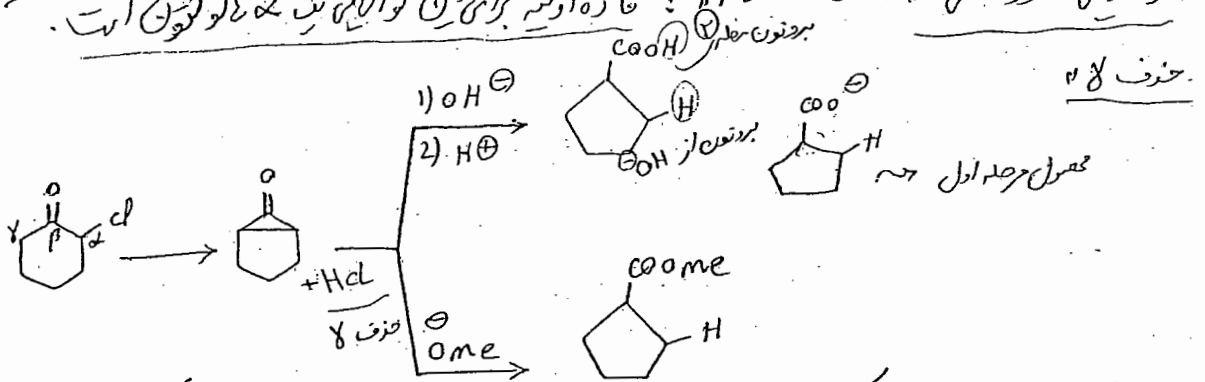 ماده اولیه برای این نوآرایی یک α هالوکتون است.
حذف γ:
COOH ②
پروتون مرحله
1) OH⊖
2) H⊕
H
پروتون از OH⊖
COO⊖
H
محصول مرحله اول
O
Cl
γ β α
O
+HCl
حذف γ
⊖OMe
COOMe
H